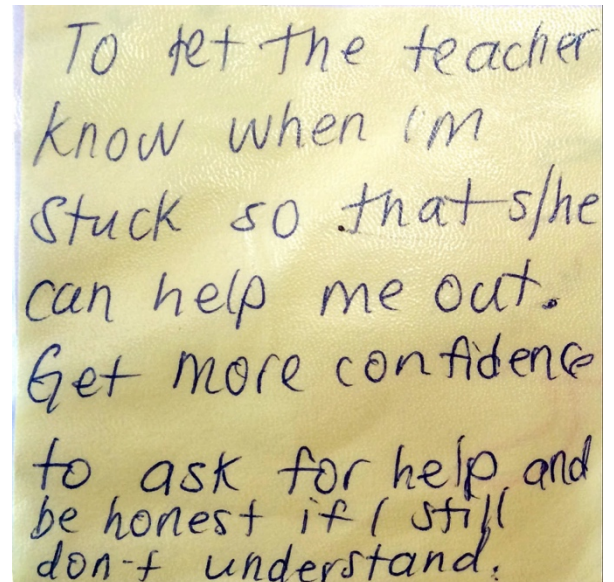 To let the teacher
know when i'm
stuck so that s/he
can help me out.
Get more confidence
to ask for help and
be honest if I still
don-t understand.